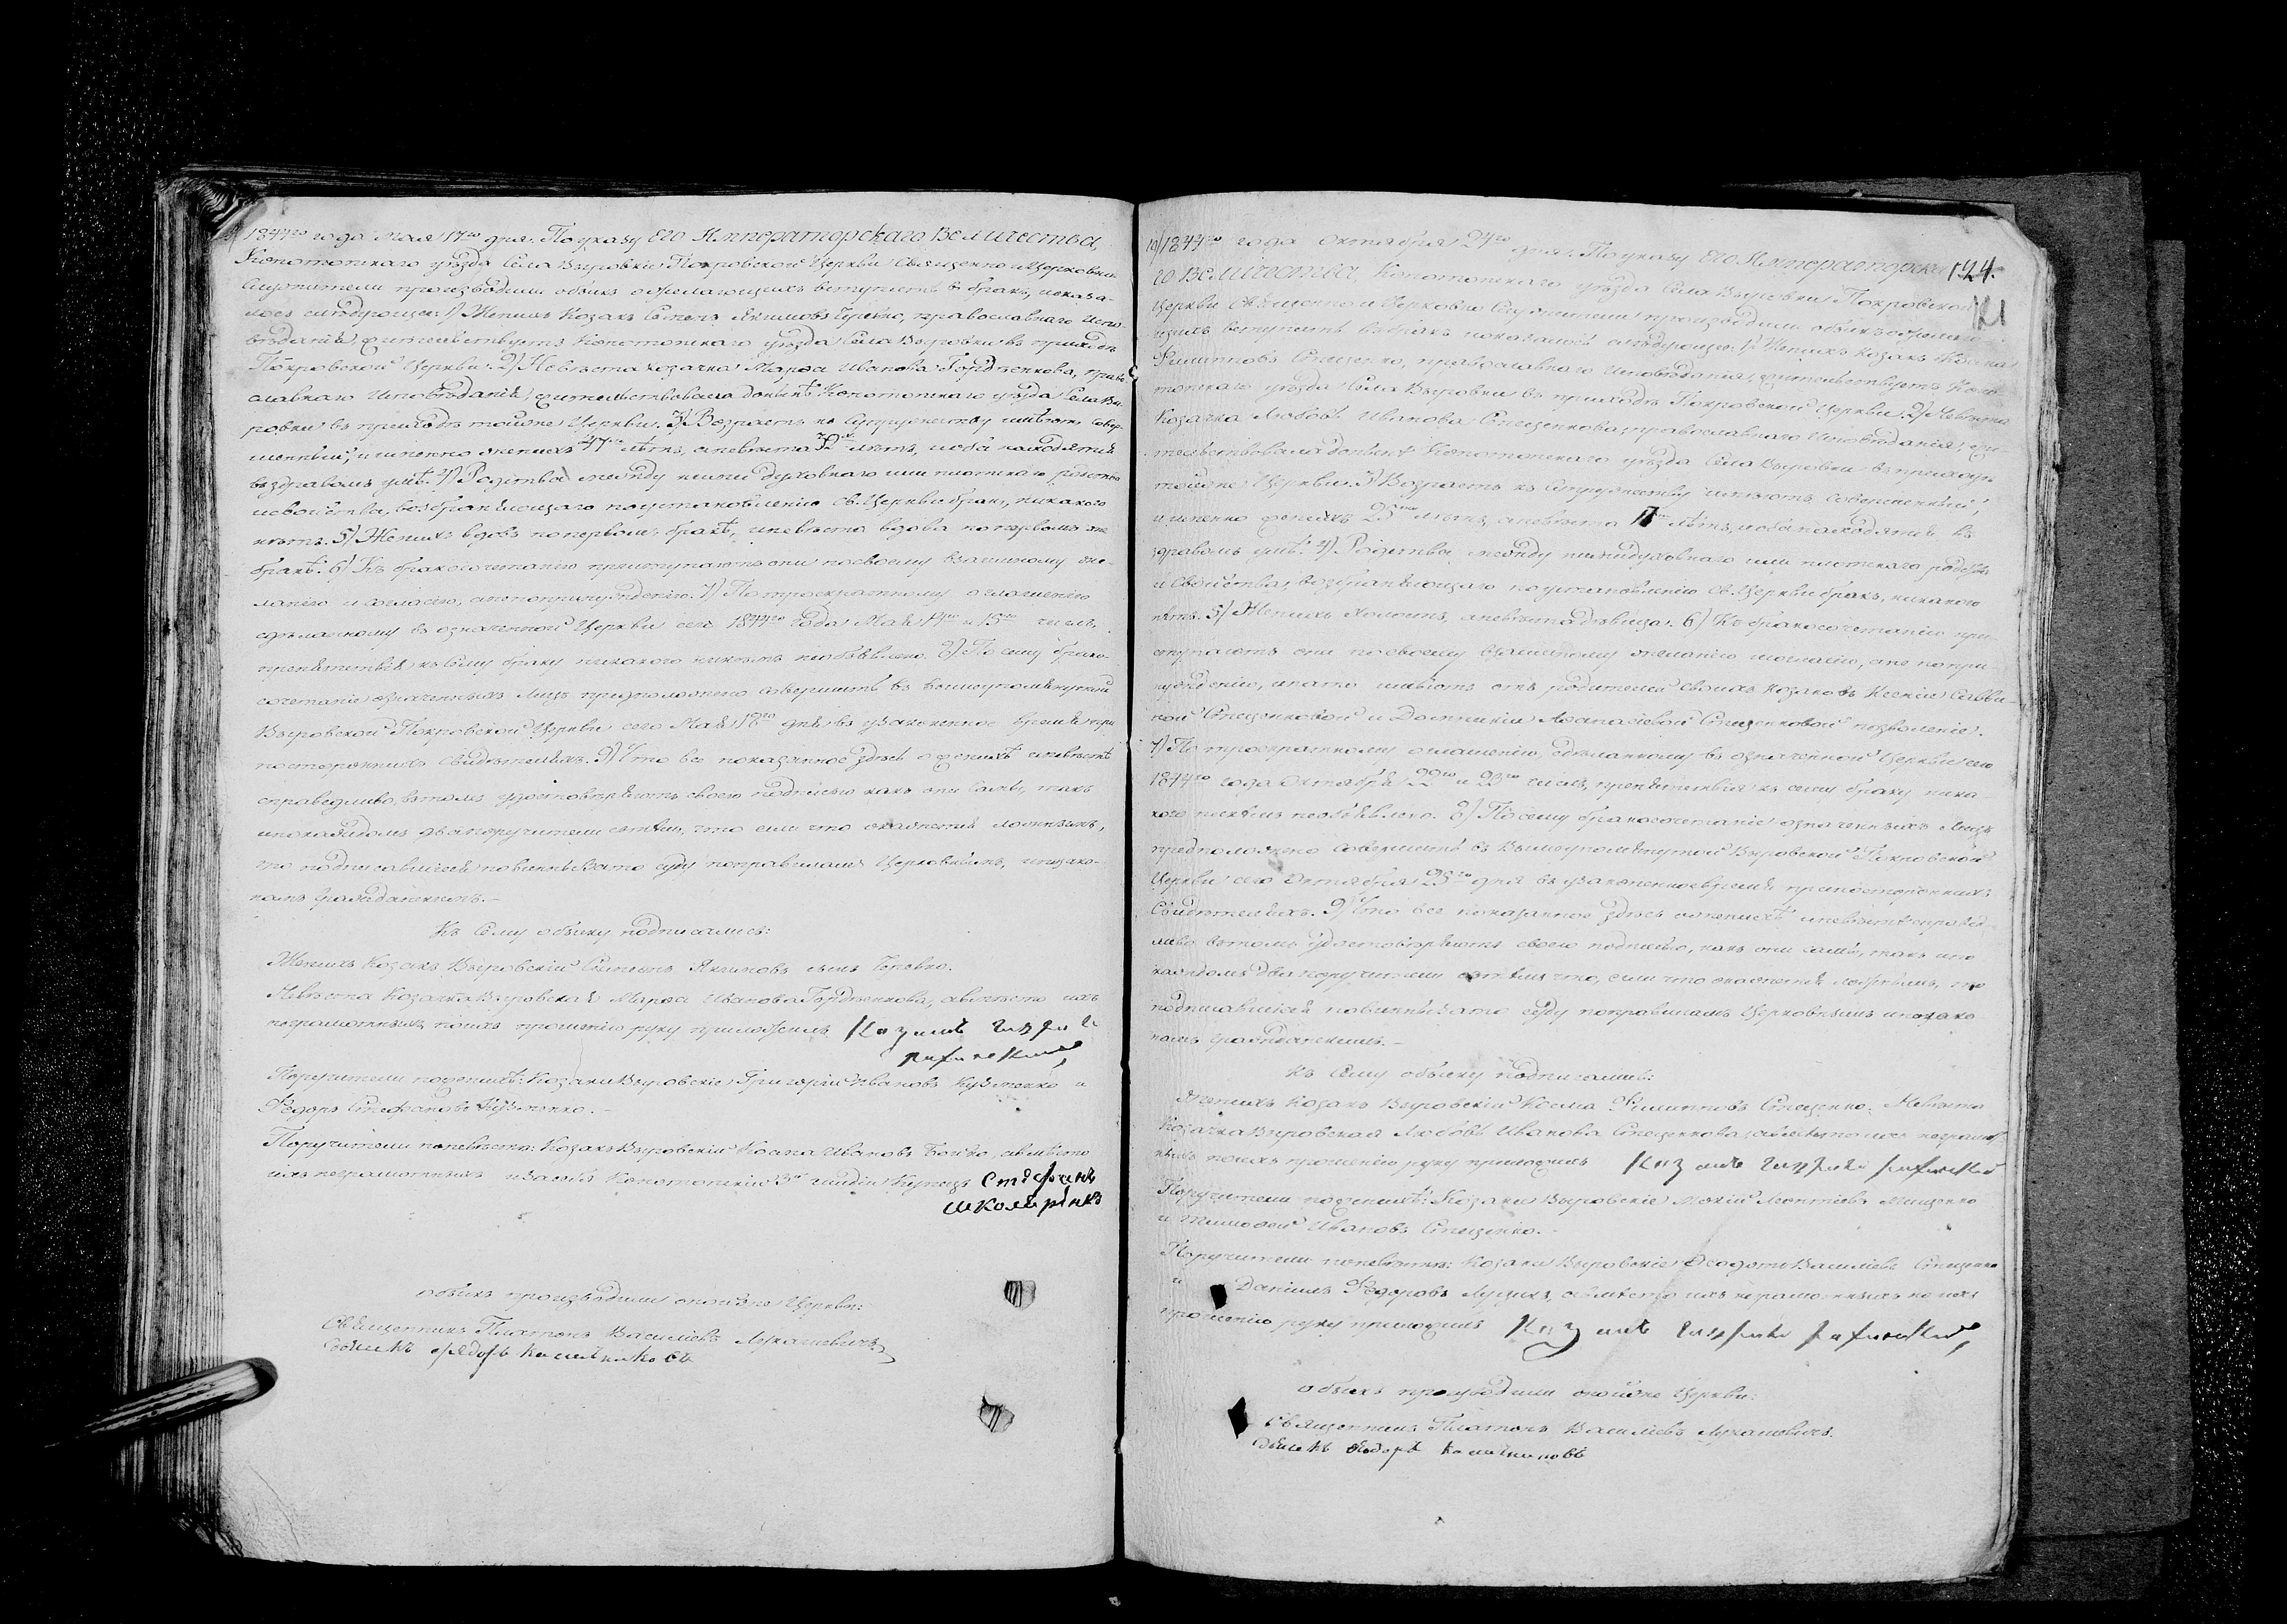 1844го года мая 17го дня. По указу Его Императорскаго Величества,
Конотопскаго уѣзда Села Выровки Покровской Церкви Священно и Церковно
Служители производили обыскъ о желающихъ вступить в бракъ, и оказа-
лось слѣдующее: 1) Женихъ Козакъ Семенъ Якимовъ, православнаго испо-
вѣданія, жительствуетъ Конотопскаго уѣзда Села Выровки въ приходѣ
Покровской Церкви. 2) Невѣста козачка Марѳа Иванова Гордѣенкова, право-
славнаго исповѣданія, жительствовала донынѣ Конотопскаго уѣзда Села Вы-
ровки въ приходѣ тойже Церкви. 3) Возрастъ къ супружеству имѣютъ совер-
шенный, и именно женихъ 47 лѣтъ, а невѣста 32 лѣтъ, и оба находятся
въ здравомъ умѣ. 4) Родства между ними духовнаго или плотскаго родства
и свойства, возбраняющаго по установленію св. Церкви бракъ, никакого
нѣтъ. 5) Женихъ вдовъ по первомъ бракѣ, и невѣста вдова по первомъ же
бракѣ. 6) Къ бракосочетанію приступаютъ они по своему взаимному же-
ланію и согласію, а не по принужденію. 7) По троекратному оглашенію
сдѣланному въ означенной Церкви сего 1844го года Мая 14го и 15го числъ,
препятствія къ сему браку никакого никѣмъ необъявлено. 8) По сему брако-
сочетаніе означенныхъ лицъ предположено совершить въ вышеупомянутой
Выровской Покровской Церкви сего Мая 18го дня въ узаконенное время при
постороннихъ свидѣтеляхъ. 9) Что все показанное здѣсь о женихѣ и невѣстѣ
справедливо, въ томъ удостовѣряютъ своею подписью какъ они сами, такъ
и по каждомъ два поручители съ тѣмъ, что если что окажется ложнымъ,
то подписавшіеся повинны за то суду по правиламъ Церковнымъ, и по зако-
намъ гражданскимъ.
Къ сему обыску подписались:
Женихъ Козакъ Выровскій Семенъ Якимовъ сынъ
Невѣста Козачка Выровская Марѳа Иванова Гордѣенкова, а вмѣсто ихъ
неграмотныхъ по ихъ прошенію руку приложилъ
Поручители по женихѣ: Козаки Выровскіе Григорій Ивановъ Кузменко и
Федоръ Стефановъ Кузменко.
Поручители по невѣстѣ: Козакъ Выровскій Косма Ивановъ Бойко, а вмѣсто
ихъ неграмотныхъ и за себя Конотопскій 3й гильдіи Купецъ Стефанъ
Шкляринъ
Обыскъ производили тойже Церкви:
Священникъ Платонъ Василіевъ Лукашевичъ
Дьякъ Федоръ
10) 1844го года октября 24го дня. По указу Его Императорска- 124.
го Величества Конотопскаго уѣзда Села Выровки Покровской 121
Церкви Священно и Церковно Служители производили обыскъ о желаю-
щихъ вступить въ бракъ и оказалось слѣдующее: 1) Женихъ Козакъ Косма
Филиповъ Стещенко, православнаго исповѣданія, жительствуетъ Коно-
топскаго уѣзда Села Выровки въ приходѣ Покровской Церкви. 2) Невѣста
Козачка Любовь Иванова Стещенкова, православнаго исповѣданія, жи-
тельствовала донынѣ Конотопскаго уѣзда Села Выровки въ приходѣ
тойже Церкви. 3) Возрастъ къ супружеству имѣютъ совершенный,
и именно женихъ 23 лѣтъ, а невѣста 17 лѣтъ, и оба находятся въ
здравомъ умѣ. 4) Родства между ними духовнаго или плотскаго родства
и свойства, возбраняющаго по установленію св. Церкви бракъ, никакого
нѣтъ. 5) Женихъ холостъ, а невѣста дѣвица. 6) Къ бракосочетанію при-
ступаютъ они по своему взаимному желанію и согласію, а не по при-
нужденію, и на то имѣютъ отъ родителей своихъ козаковъ Ксеніи Савви-
ной Стещенковой и Домникіи Аѳанасіевой Стещенковой позволеніе.
7) По троекратному оглашенію, сдѣланному въ означенной Церкви сего
1844го года Октября 22го и 23го числъ, препятствія къ сему браку ника-
кого никѣмъ необъявлено. 8) По сему бракосочетаніе означенныхъ лицъ
предположено совершить въ вышеупомянутой Выровской Покровской
Церкви сего Октября 25го дня въ узаконенное время при постороннихъ
Свидѣтеляхъ. 9) Что все показанное здѣсь о женихѣ и невѣстѣ справед-
ливо въ томъ удостовѣряютъ своею подписью, какъ они сами, такъ и по
каждомъ два поручители съ тѣмъ что, если что окажется ложнымъ, то
подписавшіеся повинны за то суду по правиламъ Церковнымъ и по зако-
намъ гражданскимъ.
Къ сему обыску подписались:
Женихъ Козакъ Выровскій Косма Филиповъ Стещенко. Невѣста
Козачка Выровская Любовь Иванова Стещенкова, а вмѣсто ихъ неграмот-
ныхъ по ихъ прошенію руку приложилъ
Поручители по женихѣ: Козаки Выровскіе Мокій Леонтіевъ Мищенко
и Тимофей Ивановъ Стещенко.
Поручители по невѣстѣ: Козаки Выровскіе Ѳеодотъ Василіевъ Стещенко
и Даніилъ Федоровъ Луцикъ, а вмѣсто ихъ неграмотныхъ по ихъ
прошенію руку приложилъ
Обыскъ производили тойже Церкви:
Священникъ Платонъ Василіевъ Лукашевичъ.
Дьякъ Федоръ